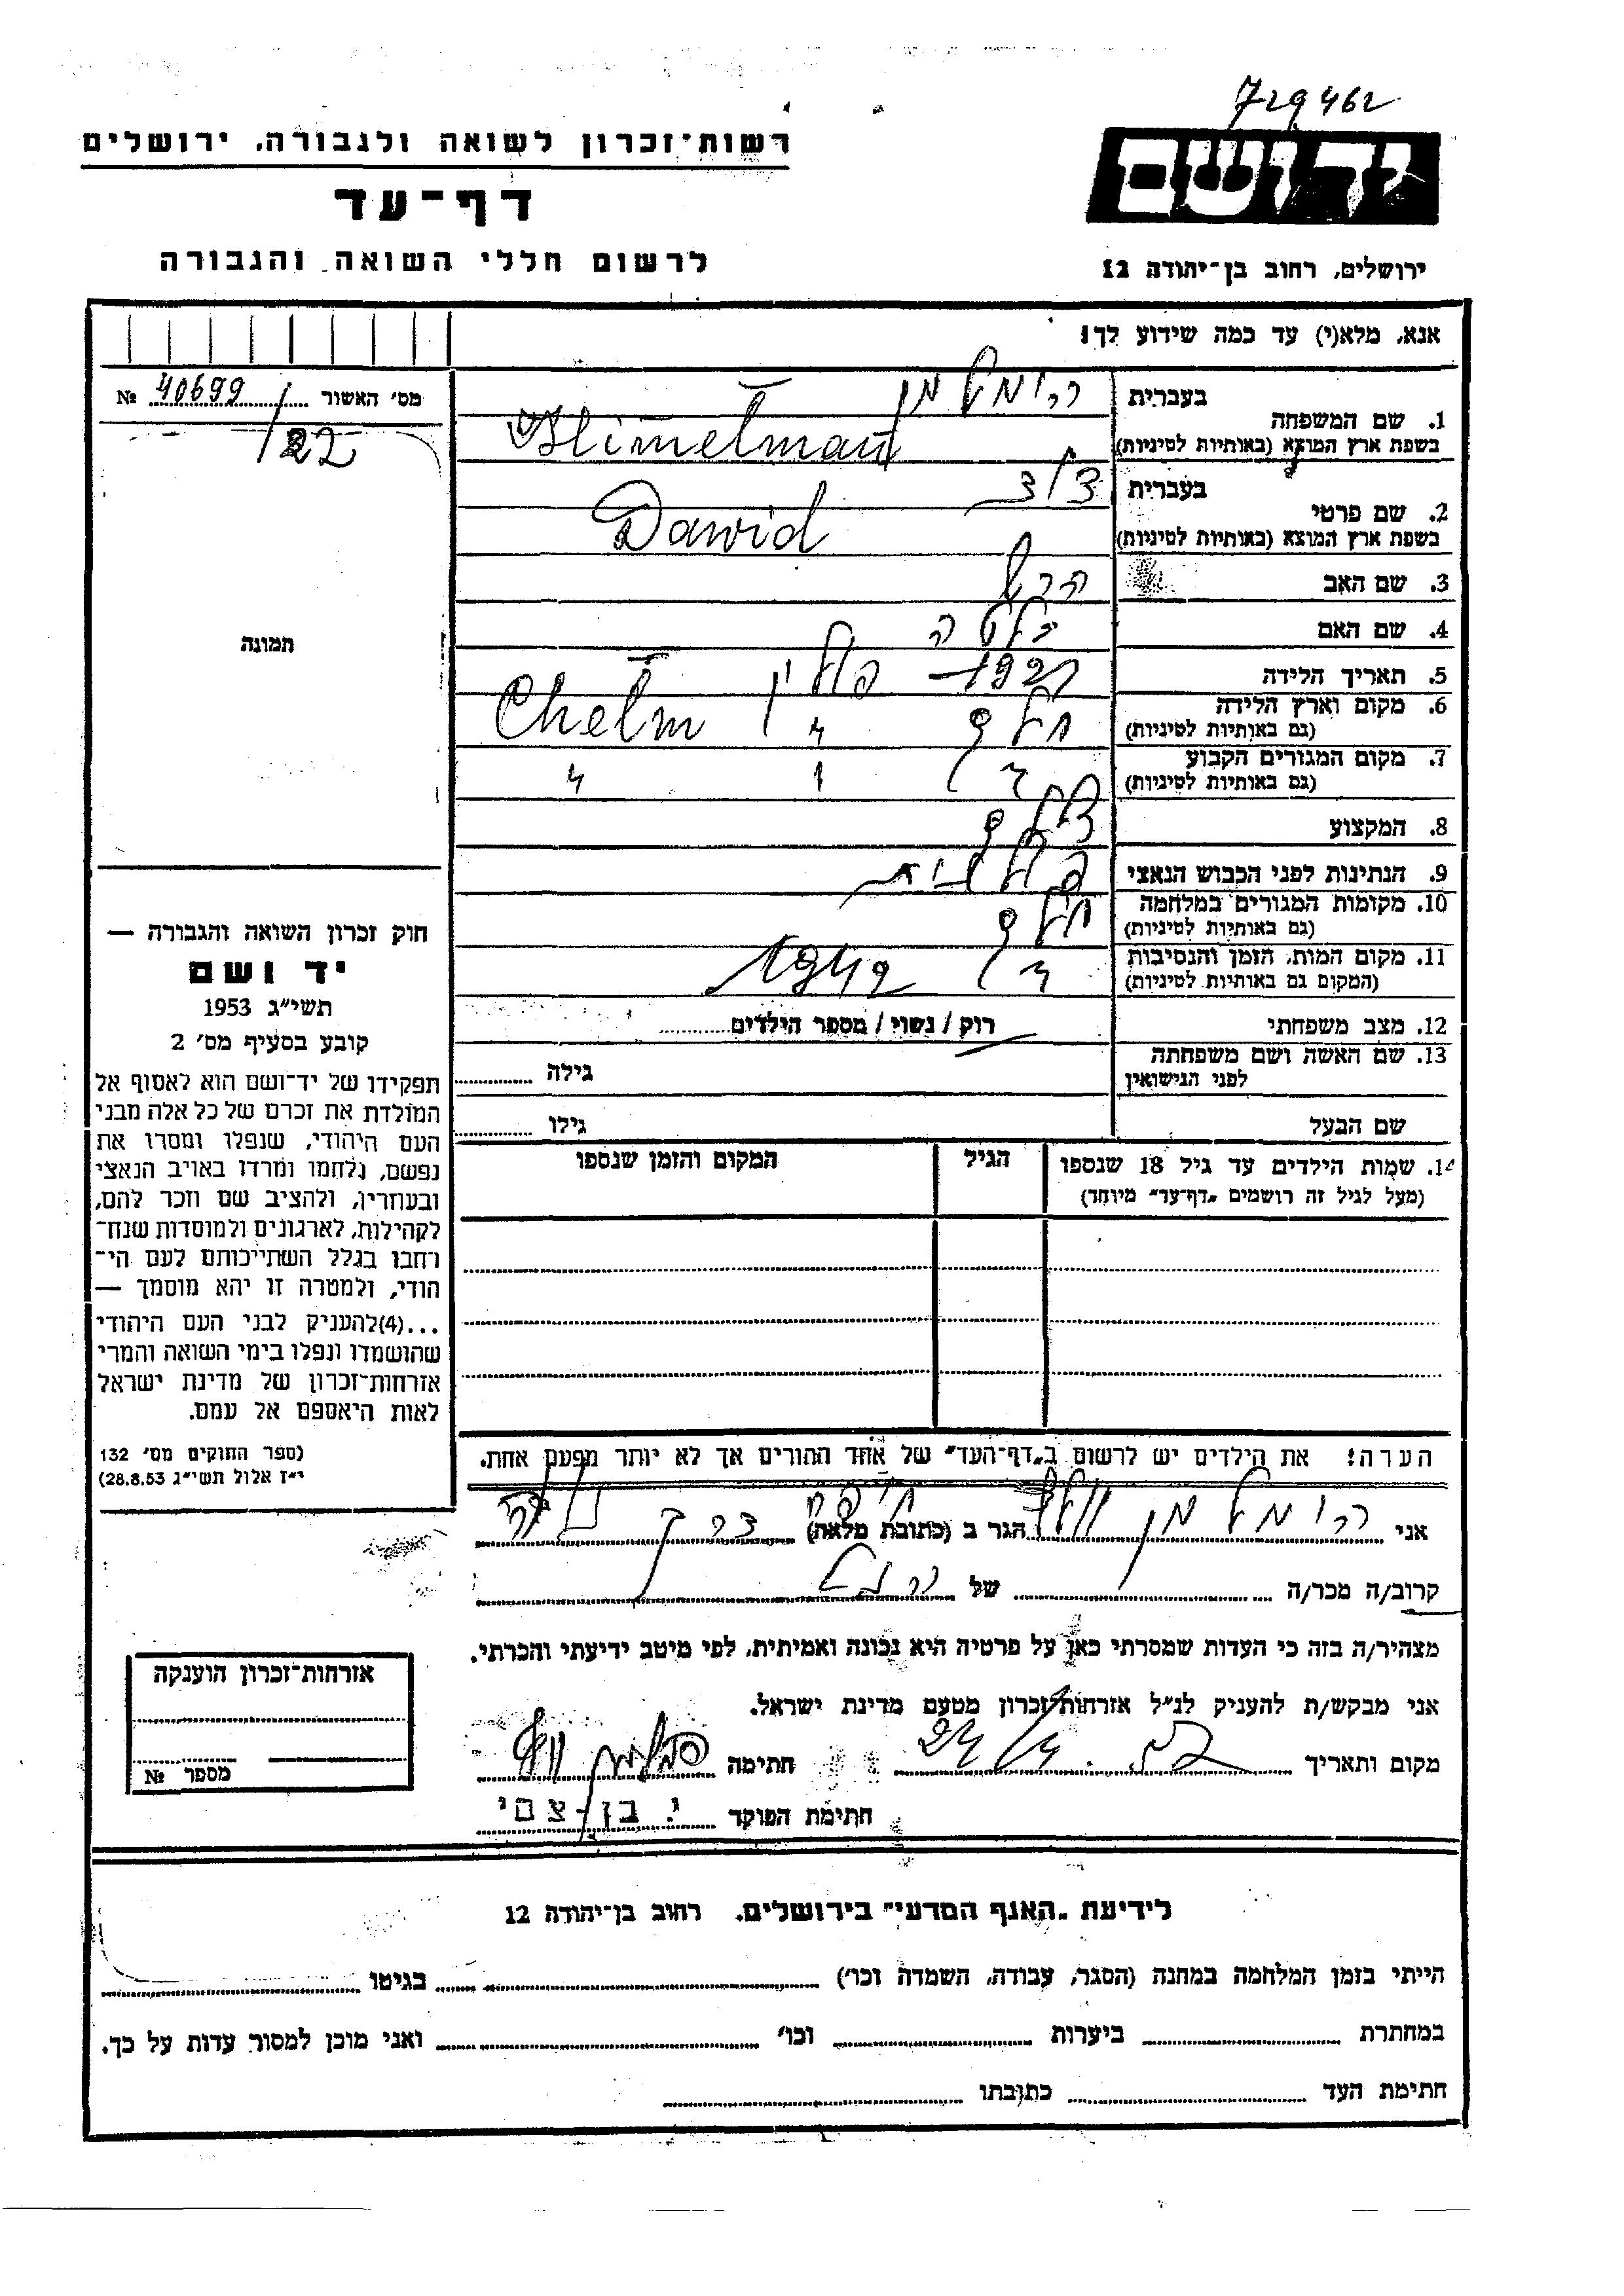 729462
רשות־זכרון לשואה ולגבורה, ירושלים
יד ושם
דף־עד
לרשום חללי השואה והגבורה
ירושלים, רחוב בן־יהודה 12
אנא, מלא(י) עד כמה שידוע לך!
מס׳ האשור 40699 №
122
1. שם המשפחה
בעברית
בשפת ארץ המוצא (באותיות לטיניות)
2. שם פרטי
בעברית דוד
בשפת ארץ המוצא (באותיות לטיניות) Dawid
3. שם האב
4. שם האם
תמונה
5. תאריך הלידה 1921
6. מקום וארץ הלידה חלם פולין Chełm
(גם באותיות לטיניות)
7. מקום המגורים הקבוע
(גם באותיות לטיניות)
8. המקצוע
9. הנתינות לפני הכבוש הנאצי פולנית
10. מקומות המגורים במלחמה חלם
(גם באותיות לטיניות)
11. מקום המות, הזמן והנסיבות 1942
(המקום גם באותיות לטיניות)
12. מצב משפחתי רוק / נשוי / מספר הילדים
13. שם האשה ושם משפחתה גילה
לפני הנישואין
שם הבעל גילו
14. שמות הילדים עד גיל 18 שנספו הגיל המקום והזמן שנספו
(מעל לגיל זה רושמים „דף־עד״ מיוחד)
חוק זכרון השואה והגבורה —
יד ושם
תשי״ג 1953
קובע בסעיף מס׳ 2
תפקידו של יד־ושם הוא לאסוף אל
המולדת את זכרם של כל אלה מבני
העם היהודי, שנפלו ומסרו את
נפשם, נלחמו ומרדו באויב הנאצי
ובעוזריו, ולהציב שם וזכר להם,
לקהילות, לארגונים ולמוסדות שנח־
רחבו בגלל השתייכותם לעם הי־
הודי, ולמטרה זו יהא מוסמך —
...(4)להעניק לבני העם היהודי
שהושמדו ונפלו בימי השואה והמרי
אזרחות־זכרון של מדינת ישראל
לאות היאספם אל עמם.
(ספר החוקים מס׳ 132
י״ז אלול תשי״ג 28.8.53)
הערה! את הילדים יש לרשום ב„דף־העד״ של אחד ההורים אך לא יותר מפעם אחת.
אני הגר ב (כתובת מלאה)
קרוב/ה מכר/ה של
מצהיר/ה בזה כי העדות שמסרתי כאן על פרטיה היא נכונה ואמיתית, לפי מיטב ידיעתי והכרתי.
אני מבקש/ת להעניק לנ״ל אזרחות־זכרון מטעם מדינת ישראל.
מקום ותאריך חתימה
חתימת הפוקד
אזרחות־זכרון הוענקה
מספר №
לידיעת „האגף המדעי״ בירושלים, רחוב בן־יהודה 12
הייתי בזמן המלחמה במחנה (הסגר, עבודה, השמדה וכו׳) בגיטו
במחתרת ביערות וכו׳ ואני מוכן למסור עדות על כך.
חתימת העד כתובתו